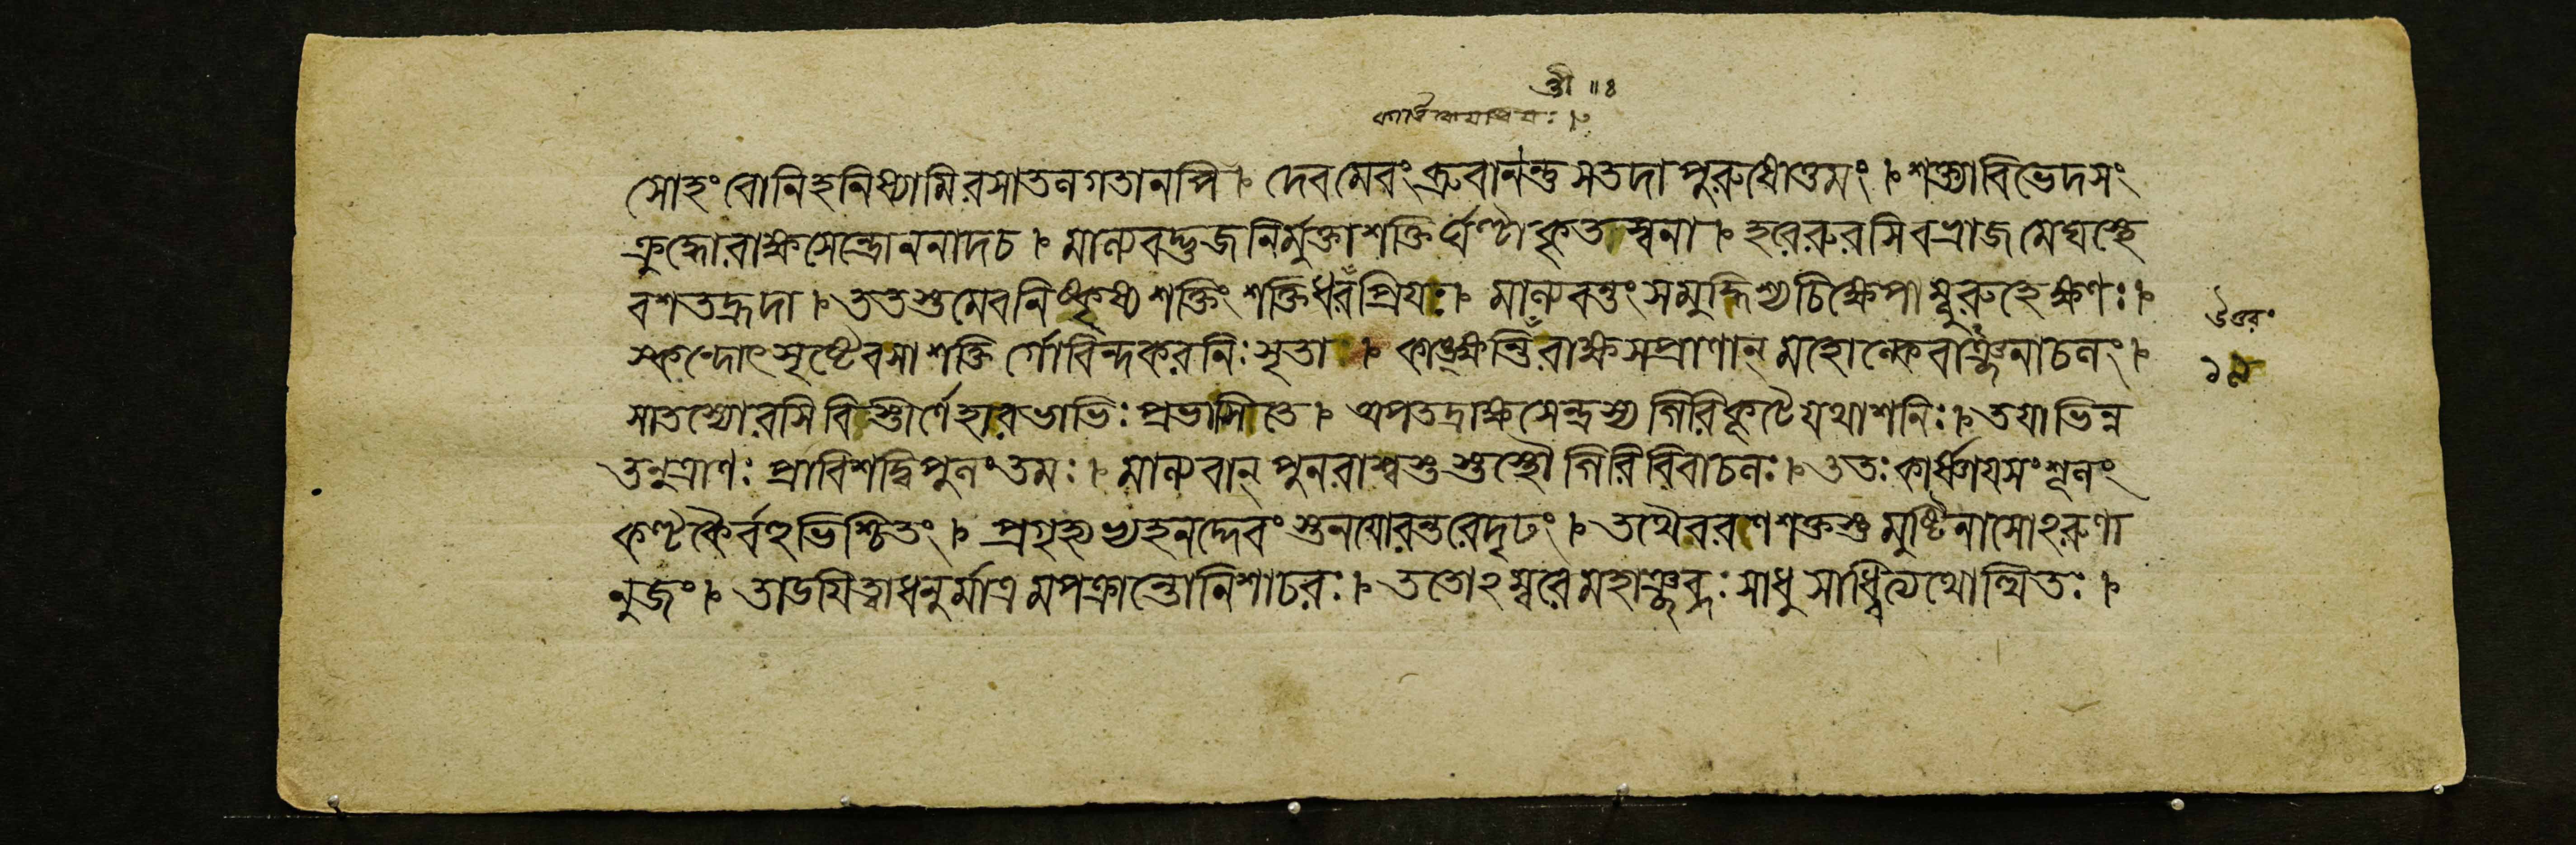 শ্রী ॥ ৪
সোহং বোনিহনিষ্যামি রসাতলগতানপি । দেবমেবং ব্রুবানন্তু স তদা পুরুষোত্তমং । শক্ত্যা বিভেদ সং
ক্রুদ্ধো রাক্ষসেন্দ্রো ননাদ চ । মাল্যবদ্ভুজনির্মুক্তা শক্তির্ঘণ্টাকৃতস্বনা । হরেরুরসি বভ্রাজ মেঘস্থে
ব শতহ্রদা । ততস্তমেব নিষ্কৃষ্য শক্তিং শক্তিধরঁপ্রিয়ঃ । মাল্যবন্তং সমুদ্দিশ্য চিক্ষেপাম্বুরুহেক্ষণঃ ।
স্কন্দোৎসৃষ্টেব সা শক্তি র্গোবিন্দকরনিঃসৃতা । কাঙ্ক্ষন্তিঁ রাক্ষসপ্রাণান্ মহোল্কেবাঞ্জনাচলং ।
উত্তরং
সা তস্যোরসি বিস্তীর্ণে হারভাভিঃ প্রভাসিতে । অপতদ্রাক্ষসেন্দ্রস্য গিরিকূটে যথাশনিঃ । তয়া ভিন্ন
তনুত্রাণঃ প্রাবিশদ্বিপুলং তমঃ । মাল্যবান্ পুনরাশ্বস্ত স্তস্থৌ গিরিরিবাচলঃ । ততঃ কার্ষ্ণায়সং শূলং
কণ্টকৈর্বহুভিশ্চিতং । প্রগৃহ্যভ্যহনদ্দেবং স্তনয়োরন্তরে দৃঢং । তথৈব রণশক্তস্তু মুষ্টিনা সোঽরুণা
নুজং । তাডয়িত্বা ধনুর্মাত্রমপক্রান্তো নিশাচরঃ । ততোঽম্বরে মহাঞ্ছব্দঃ সাধু সাধ্বিত্যথোত্থিতঃ ।